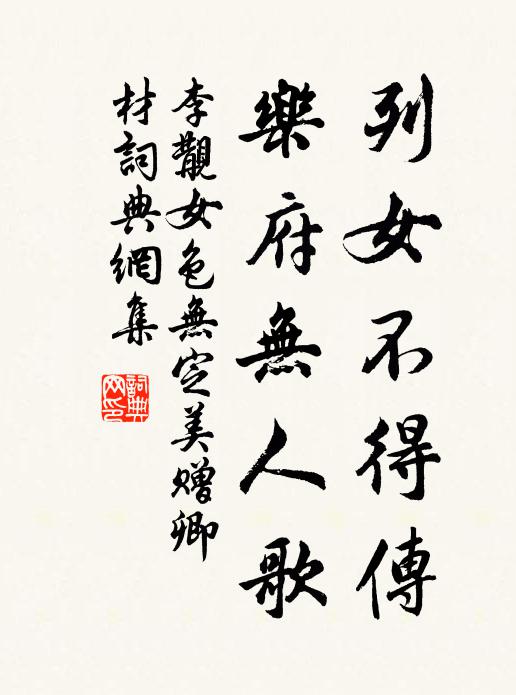 列女不得傳
樂府無人歌
李覯女色無定美贈卿
材詞典網集
詞典
网印